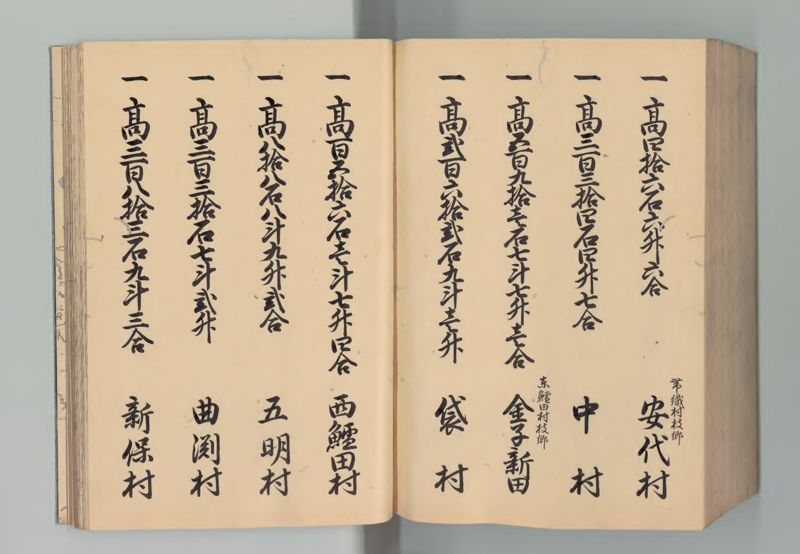 一 高四拾六石六升六合
帯織村枝郷
安代村
一 高三百三拾四石四升七合
中村
一 高五百九拾壱石七斗七升壱合
東鱈田村枝郷
金子新田
一 高弐百六拾弐石九斗壱升
袋村
一 高百五拾六石壱斗七升四合
西鱈田村
一 高八拾八石八斗九升弐合
五明村
一 高三百三拾石七斗弐升
曲渕村
一 高三百八拾三石九斗三合
新保村